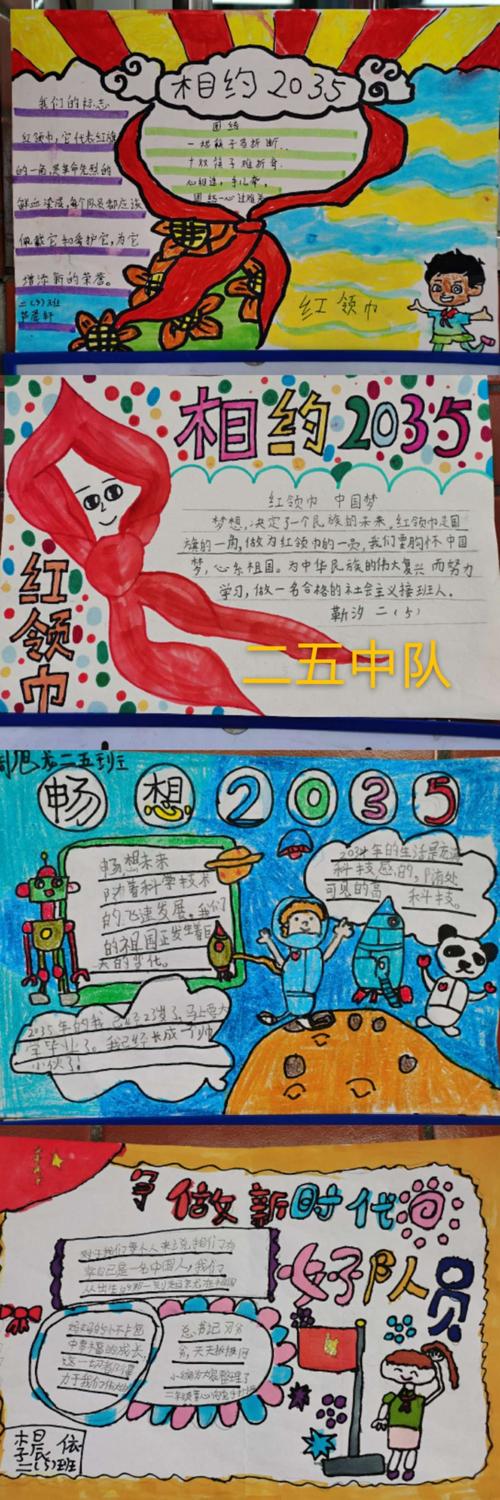 相约2035
我们的标志
红领巾，它代表红旗
的一角，是革命先烈的
鲜血染成，每个队员都应该
佩戴它和爱护它，为它
增添新的荣誉。
二(5)班
团结
一根筷子易折断.
十双筷子难折弯.
心相连，手儿牵，
红领巾
相约2035
红领巾 中国梦
梦想，决定了一个民族的未来，红领巾是国
旗的一角，做为红领巾的一员，我们要胸怀中国
梦，心系祖国。为中华民族的伟大复兴而努力
学习，做一名合格的社会主义接班人。
靳汐 二(5)
红领巾
二五中队
二五班
畅想2035
畅想未来
随着科学技术
的飞速发展。我们
的祖国正发生着巨
大的变化。
科技感的，随处
可见的高 科技。
2035年的我 已经23岁了，马上要大
学毕业了。我已经长成了帅
小伙了！
争做新时代
好队员
李晨依
二(5)班